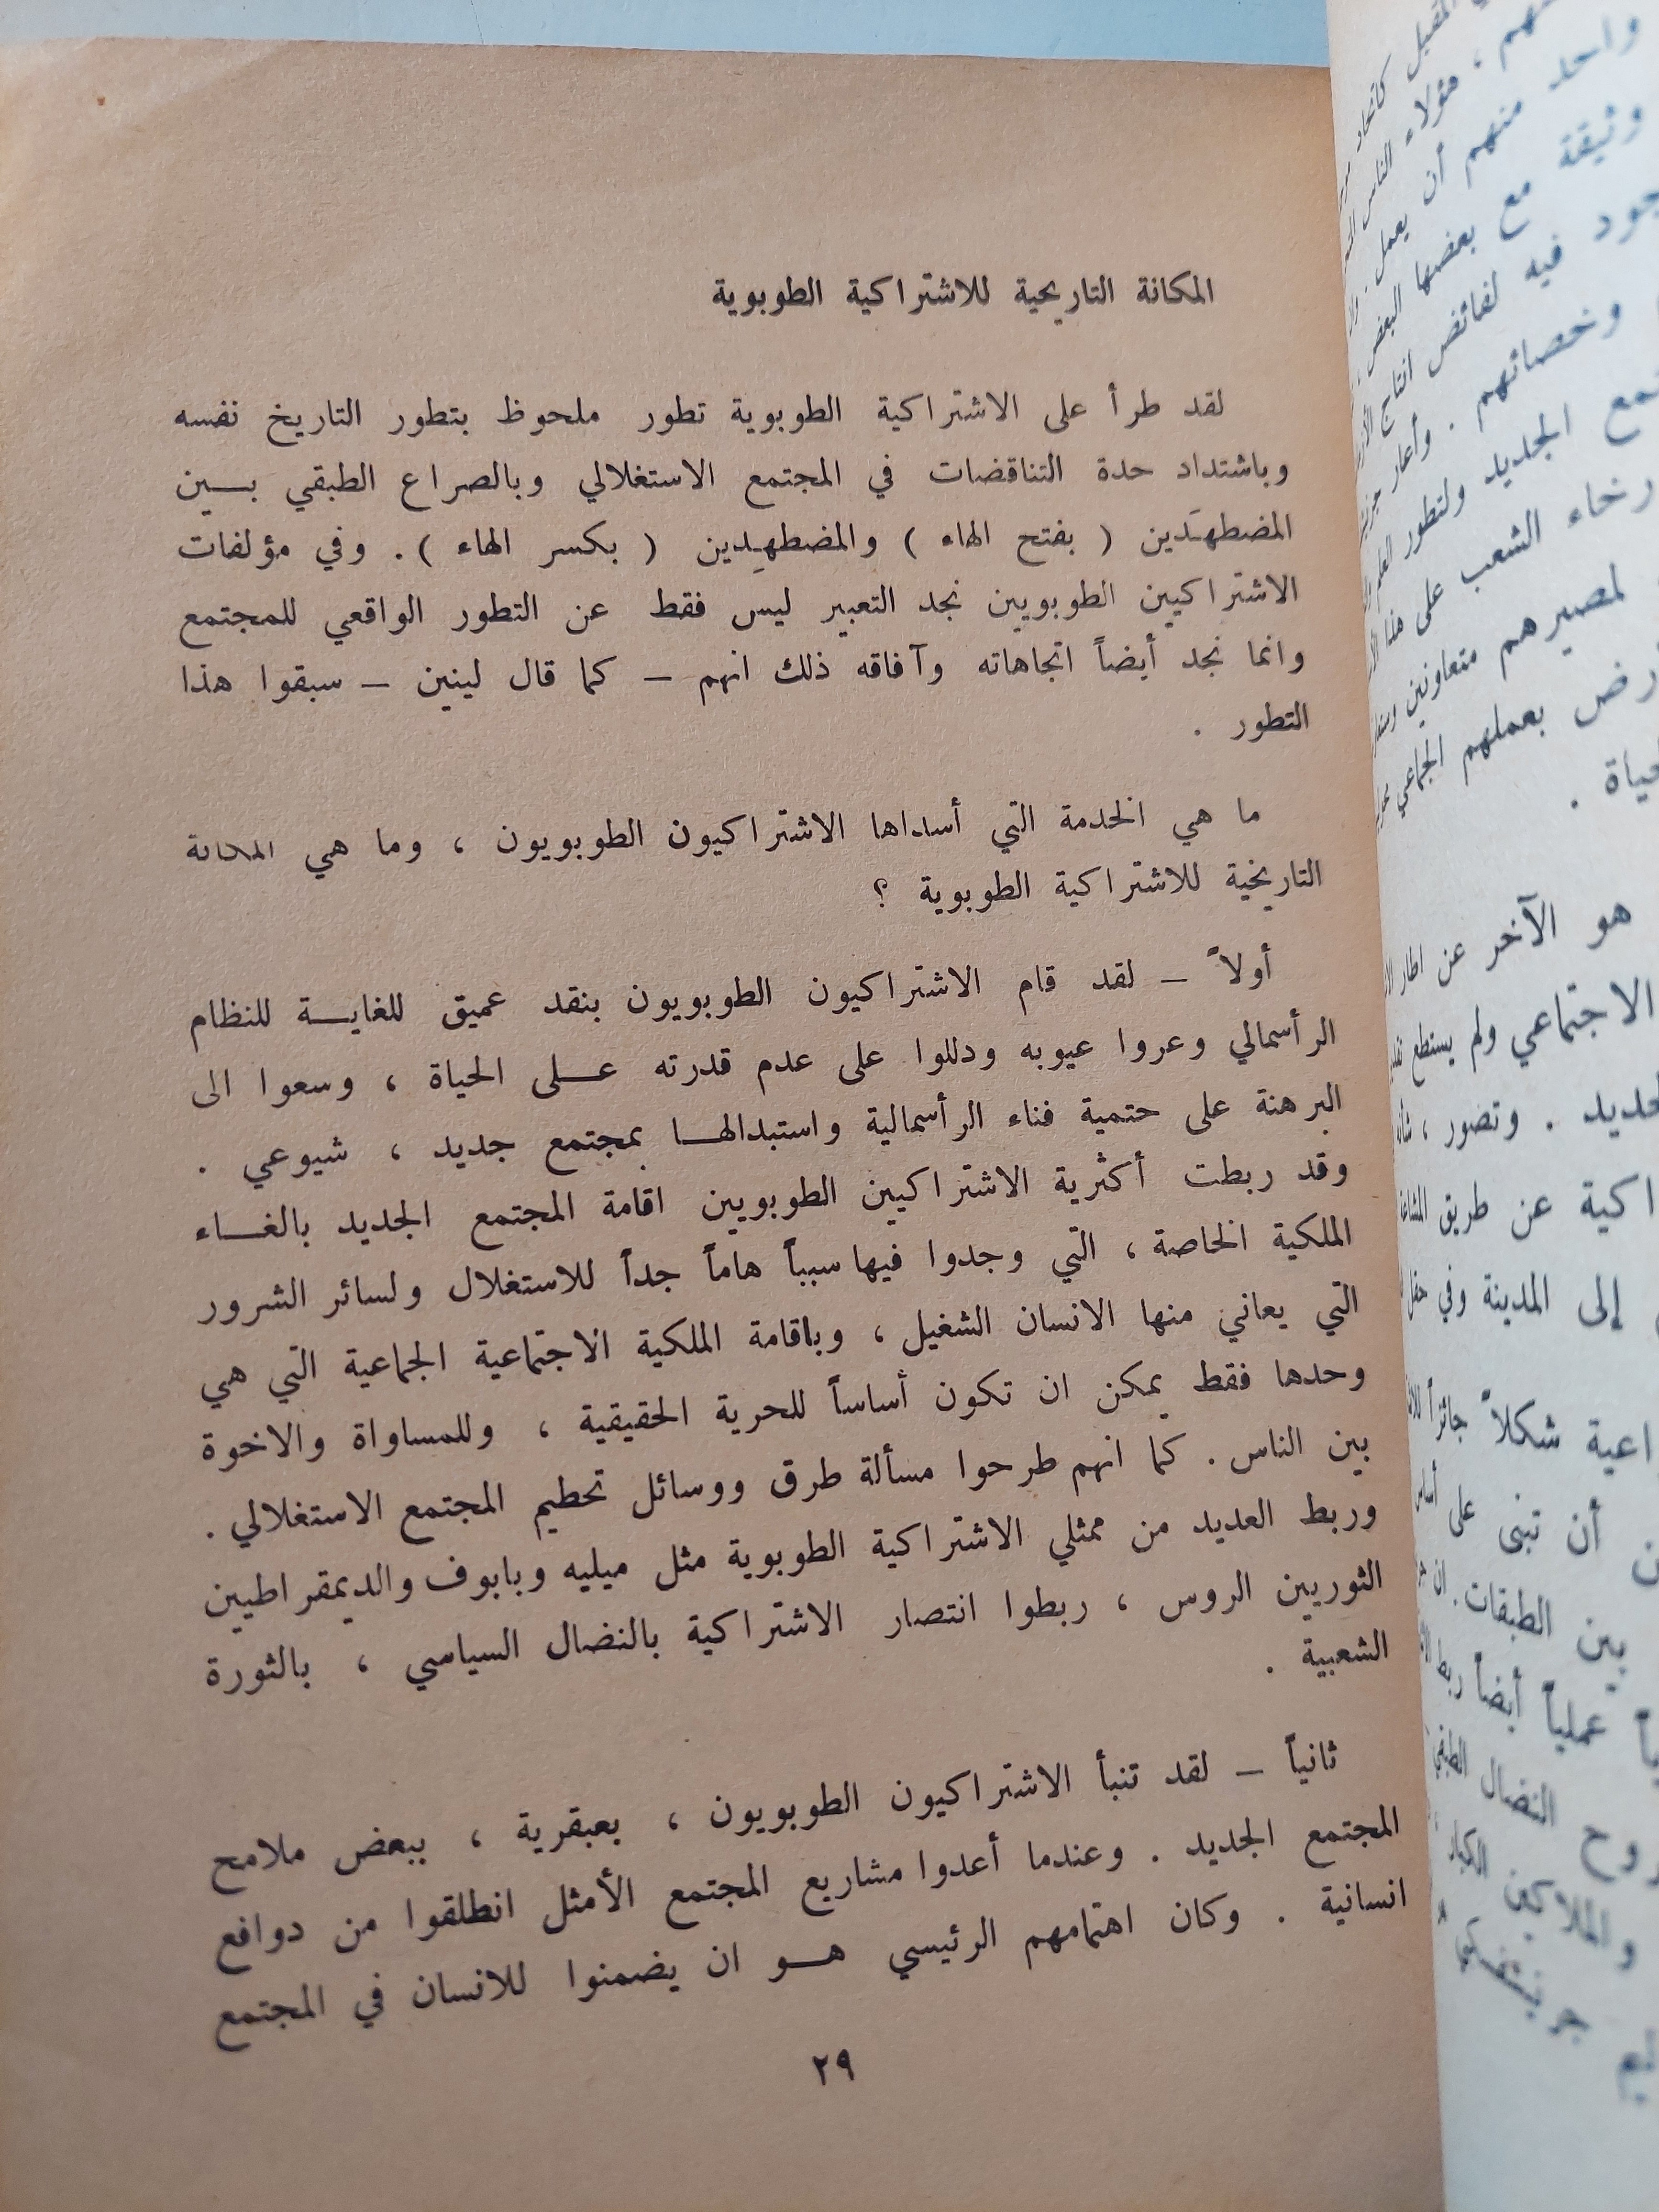 المكانة التاريخية للاشتراكية الطوبوية
لقد طرأ على الاشتراكية الطوبوية تطور ملحوظ بتطور التاريخ نفسه
وباشتداد حدة التناقضات في المجتمع الاستغلالي وبالصراع الطبقي بـــين
المضطهَدين ( بفتح الهاء ) والمضطهِدين ( بكسر الهاء ) . وفي مؤلفات
الاشتراكيين الطوبويين نجد التعبير ليس فقط عن التطور الواقعي للمجتمع
وانما نجد أيضاً اتجاهاته وآفاقه ذلك انهم – كما قال لينين – سبقوا هذا
التطور .
ما هي الخدمة التي أسداها الاشتراكيون الطوبويون ، وما هي المكانة
التاريخية للاشتراكية الطوبوية ؟
أولاً – لقد قام الاشتراكيون الطوبويون بنقد عميق للغايـــة للنظام
الرأسمالي وعروا عيوبه ودللوا على عدم قدرته عـــلى الحياة ، وسعوا الى
البرهنة على حتمية فناء الرأسمالية واستبدالهـــا بمجتمع جديد ، شيوعي .
وقد ربطت أكثرية الاشتراكيين الطوبويين اقامة المجتمع الجديد بالغـــاء
الملكية الخاصة ، التي وجدوا فيها سبباً هاماً جداً للاستغلال ولسائر الشرور
التي يعاني منها الانسان الشغيل ، وباقامة الملكية الاجتماعية الجماعية التي هي
وحدها فقط يمكن ان تكون أساساً للحرية الحقيقية ، وللمساواة والاخوة
بين الناس . كما انهم طرحوا مسألة طرق ووسائل تحطيم المجتمع الاستغلالي .
وربط العديد من ممثلي الاشتراكية الطوبوية مثل ميليه وبابوف والديمقراطيين
الثوريين الروس ، ربطوا انتصار الاشتراكية بالنضال السياسي ، بالثورة
الشعبية .
ثانياً – لقد تنبأ الاشتراكيون الطوبويون ، بعبقرية ، ببعض ملامح
المجتمع الجديد . وعندما أعدوا مشاريع المجتمع الأمثل انطلقوا من دوافع
انسانية . وكان اهتمامهم الرئيسي هـــو ان يضمنوا للانسان في المجتمع
٢٩
واحد منهم أن يعمل .
وثيقة مع بعضها البعض
فيه لفائض انتاج
وخصائهم . وأعار
الجديد ولتطور العلم
رخاء الشعب على هذا
لمصيرهم متعاونين
بعملهم الجماعي
هو الآخر عن اطار
الاجتماعي ولم يستطع
. وتصور ،
عن طريق
إلى المدينة وفي
شكلاً جائزاً
أن تبنى على أساس
بين الطبقات . ان
عملياً أيضاً ربط
النضال
والملاكين